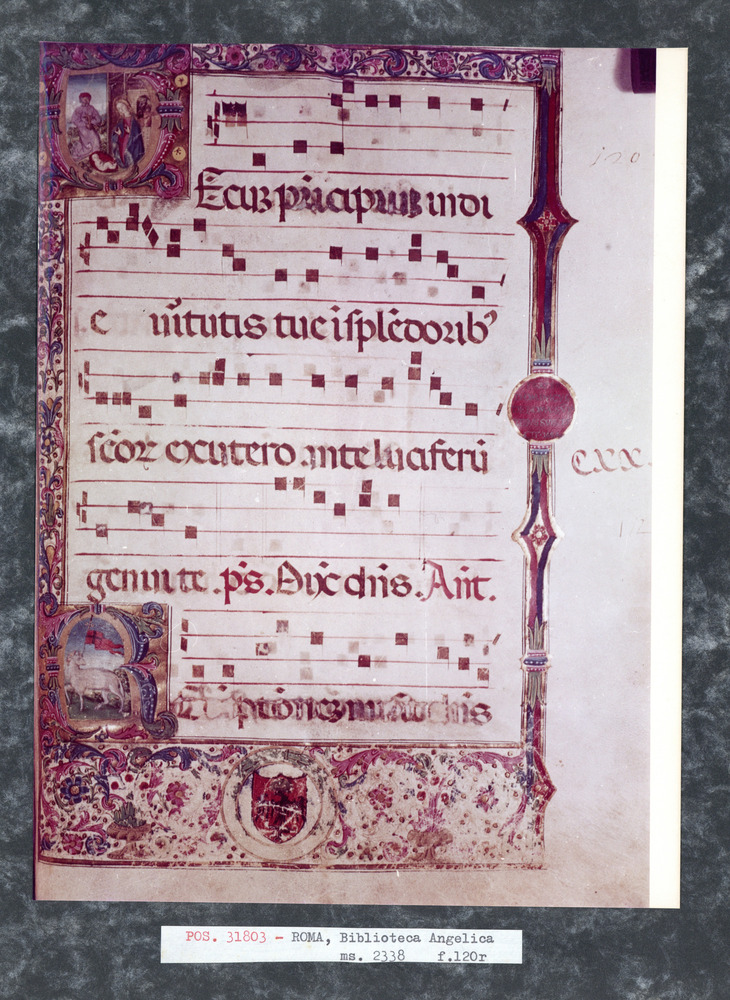 Ecuz principiuz in di
e uirtutis tue i splēdorib⁹
scōꝝ ex utero ante luciferū
genui te . p̄s. Dixit dn̄s. Añt.
R ptionez misit dn̄s
120
CXX.
12
POS. 31803 - ROMA, Biblioteca Angelica
ms. 2338 f.120r